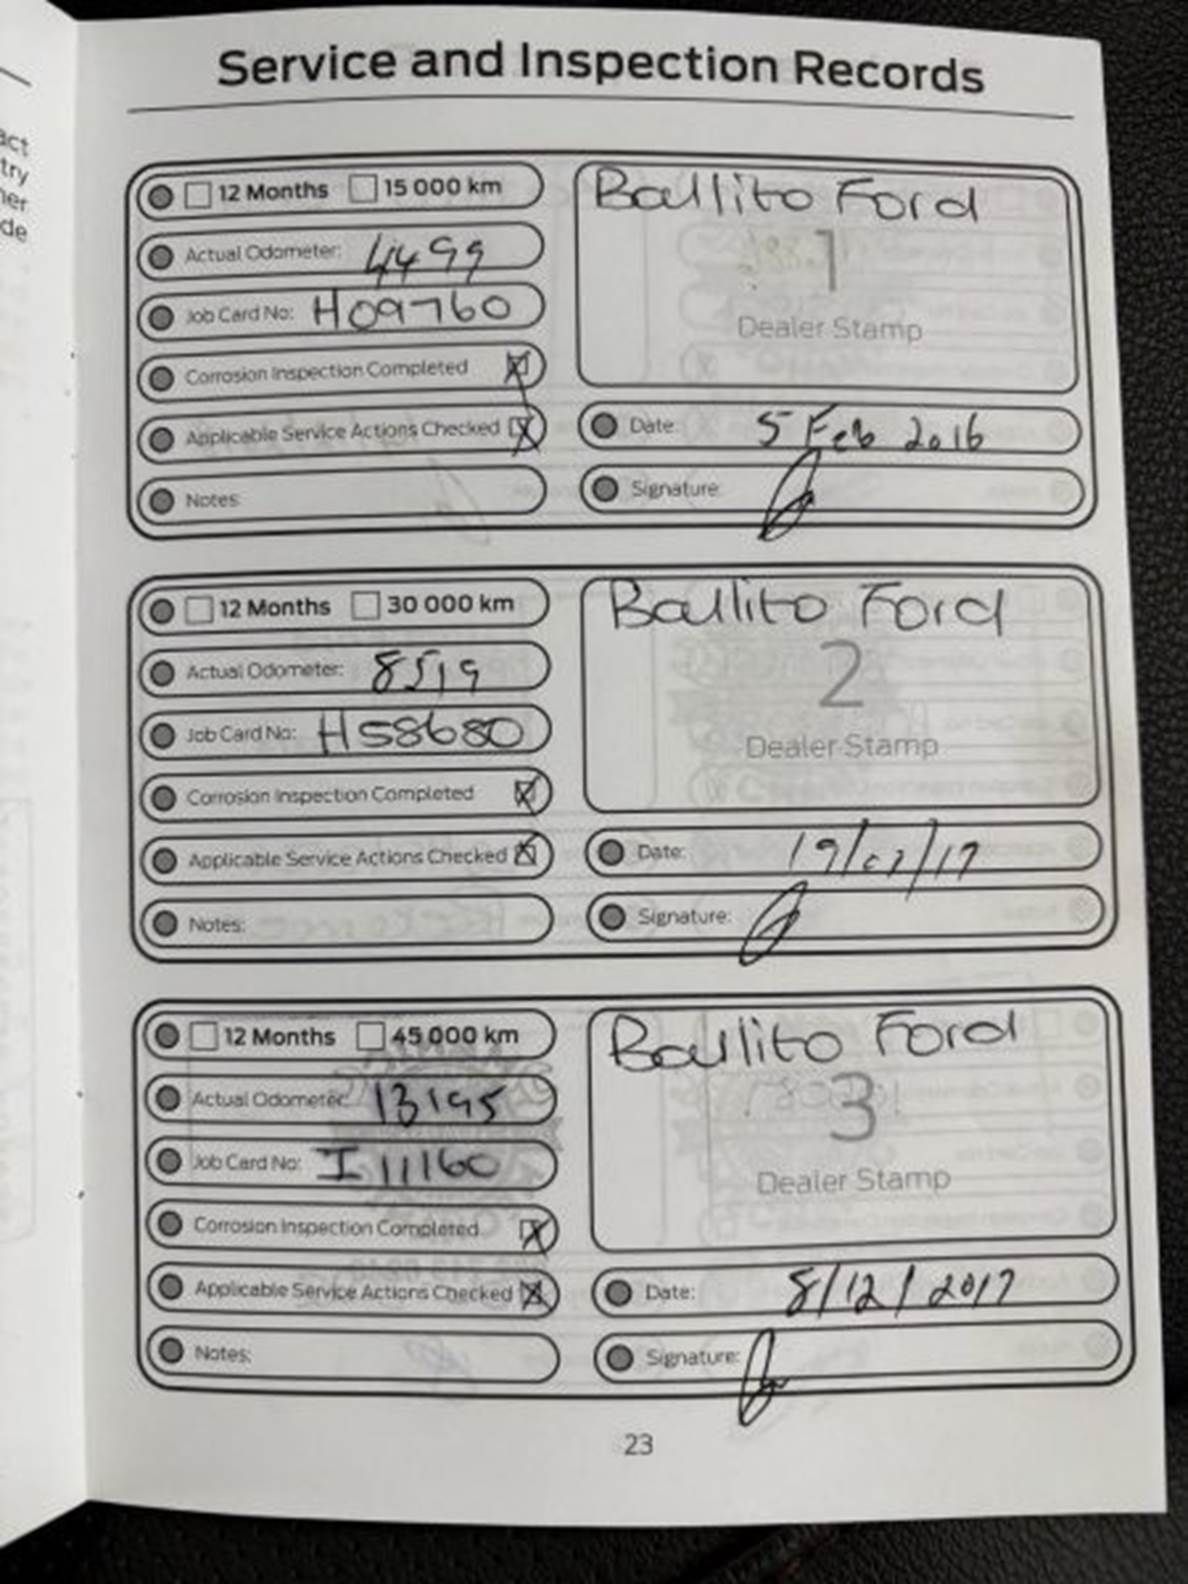 act
try
her
de
Service and Inspection Records
12 Months 15 000 km
Actual Odometer: 4499
Job Card No: H09760
Corrosion Inspection Completed
Applicable Service Actions Checked
Notes:
Ballito Ford
1
Dealer Stamp
Date: 5 Feb 2016
Signature:
12 Months 30 000 km
Actual Odometer: 8519
Job Card No: H58680
Corrosion Inspection Completed
Applicable Service Actions Checked
Notes:
Ballito Ford
2
Dealer Stamp
Date:
Signature:
12 Months 45 000 km
Actual Odometer: 13195
Job Card No: I 11160
Corrosion Inspection Completed
Applicable Service Actions Checked
Notes:
Ballito Ford
3
Dealer Stamp
Date: 8/12/2017
Signature:
23